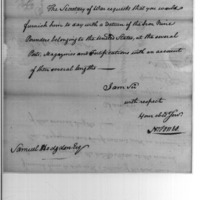 The Secretary of War requests that you would
furnish him to day with a return of the Iron Piece
belonging to the United States, at the several
Posts, Magazines and Fortifications with an account
of their several lengths —
I am Sir
with respect
Your obt Serv
Samuel Hodgdon Esq